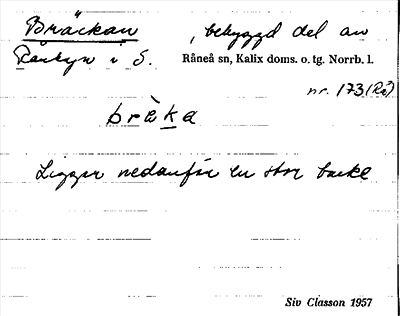 Bräckan, bebyggd del av
Råneå sn, Kalix doms. o. tg. Norrb. l.
i S.
nr. 173 (Rå)
bràka
Ligger nedanför en stor backe
Siv Classon 1957